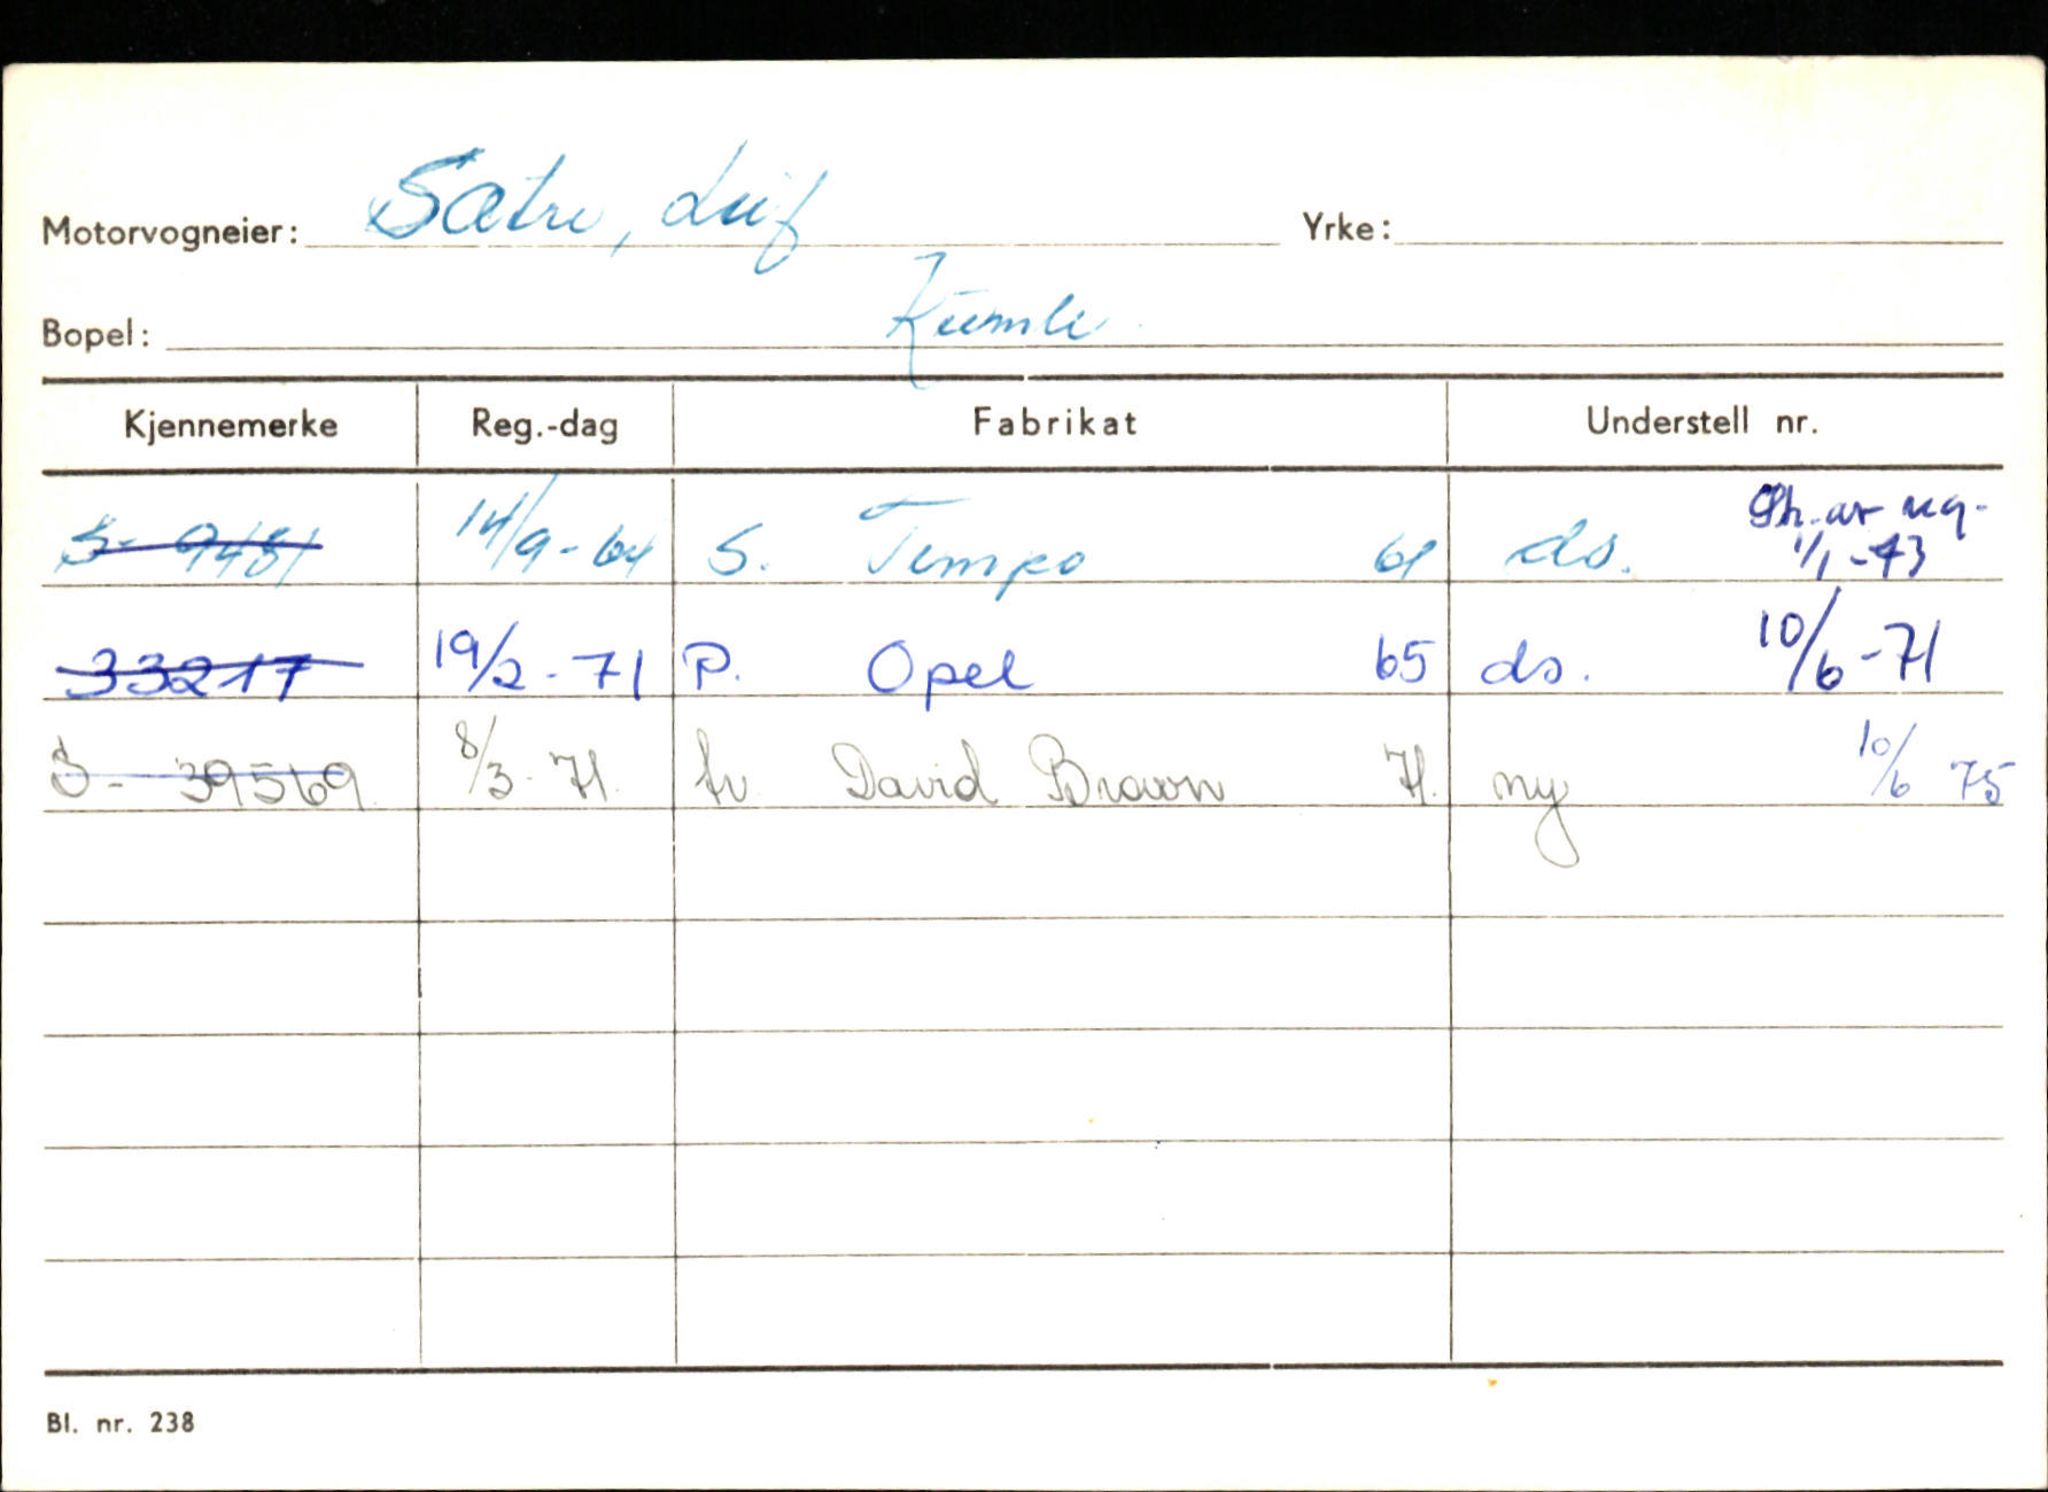 Motorvogneier: Sætre, Leif Yrke:
Bopel: Kumle
Kjennemerke Reg.-dag Fabrikat Understell nr.
S- 9481 14/9-64 S. Tempo 61 ds. Sh. av reg. 1/1-73
33217 19/2-71 P. Opel 65 ds. 10/6-71
S- 39569 8/3-71. tr. David Brown 71. ny 10/6 75
Bl. nr. 238